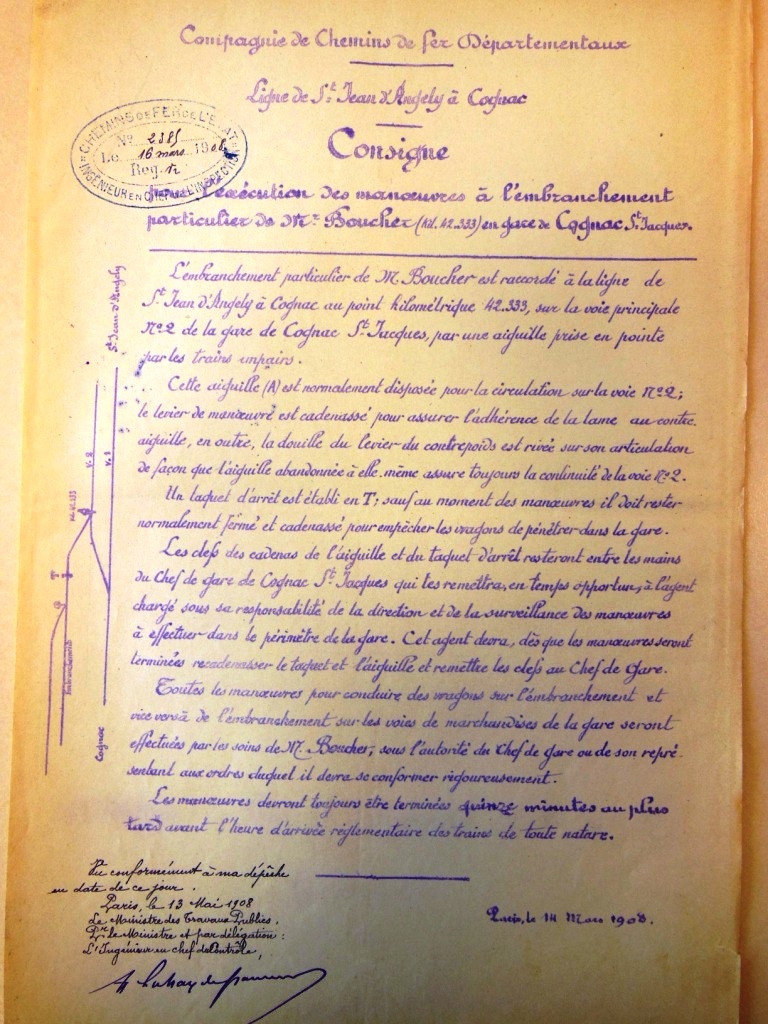 Compagnie de Chemins de fer Départementaux
Ligne de St Jean d'Angely à Cognac
CHEMINS DE FER DE L'ETAT
No 2385
Le 16 mars 1908
Reg.
INGÉNIEUR EN CHEF DE L'INSPECTION
Consigne
pour l'exécution des manœuvres à l'embranchement
particulier de Mr Boucher (kil. 42.333) en gare de Cognac St Jacques.
L'embranchement particulier de M. Boucher est raccordé à la ligne de
St Jean d'Angely à Cognac au point kilométrique 42.333, sur la voie principale
No 2 de la gare de Cognac St Jacques, par une aiguille prise en pointe
par les trains impairs.
Cette aiguille (A) est normalement disposée pour la circulation sur la voie No 2;
le levier de manœuvre est cadenassé pour assurer l'adhérence de la lame au contre
aiguille, en outre, la douille du levier du contrepoids est rivée sur son articulation
de façon que l'aiguille abandonnée à elle-même assure toujours la continuité de la voie No 2.
Un taquet d'arrêt est établi en T; sauf au moment des manœuvres il doit rester
normalement fermé et cadenassé pour empêcher les wagons de pénétrer dans la gare.
Les clefs des cadenas de l'aiguille et du taquet d'arrêt resteront entre les mains
du Chef de gare de Cognac St Jacques qui les remettra, en temps opportun, à l'agent
chargé sous sa responsabilité de la direction et de la surveillance des manœuvres
à effectuer dans le périmètre de la gare. Cet agent devra, dès que les manœuvres seront
terminées recadenasser le taquet et l'aiguille et remettre les clefs au Chef de Gare.
Toutes les manœuvres pour conduire des wagons sur l'embranchement et
vice versâ de l'embranchement sur les voies de marchandises de la gare seront
effectuées par les soins de M. Boucher, sous l'autorité du Chef de gare ou de son repré-
sentant aux ordres duquel il devra se conformer rigoureusement.
Les manœuvres devront toujours être terminées quinze minutes au plus
tard avant l'heure d'arrivée réglementaire des trains de toute nature.
St Jean d'Angely
V. 2
V. 1
T
Embranchement
Cognac
Vu conformément à ma dépêche
en date de ce jour.
Paris, le 13 Mai 1908
Le Ministre des Travaux Publics,
Pr le Ministre et par délégation:
L'Ingénieur en chef du Contrôle,
Paris, le 14 Mars 1908.